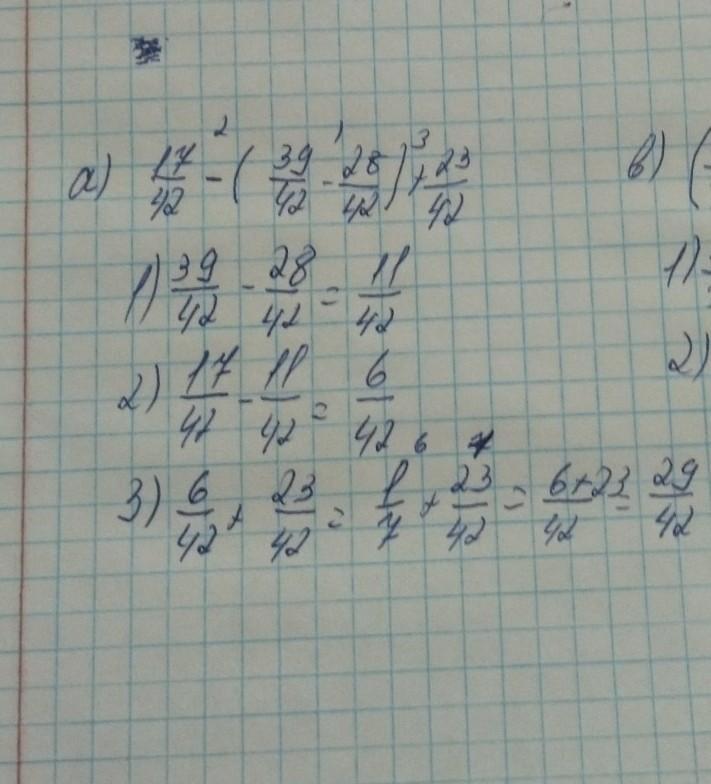 а) 17/42 - ( 39/42 - 28/42 ) + 23/42 в) (
2 1 3
1) 39/42 - 28/42 = 11/42 1)
2) 17/42 - 11/42 = 6/42 2)
3) 6/42 + 23/42 = 1/7 + 23/42 = 6+23/42 = 29/42
6